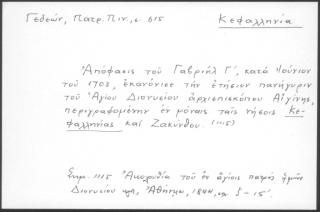 Γεδεών, Πατρ. Πιν., σ. 615
Κεφαλληνία
Ἀπόφασις τοῦ Γαβριήλ Γ', κατά Ἰούνιον
τοῦ 1703, ἐκανόνισε τήν ἐτήσιον πανήγυριν
τοῦ Ἁγίου Διονυσίου ἀρχιεπισκόπου Αἰγίνης,
περιγραφομένην ἐν μόναις ταῖς νήσοις Κε-
φαλληνίας καί Ζακύνθου. (1115)
Σημ. 1115 Ἀκολουθία τοῦ ἐν ἁγίοις πατρός ἡμῶν
Διονυσίου κτλ., Ἀθήνησι, 1844, σελ. ς-ιε'.